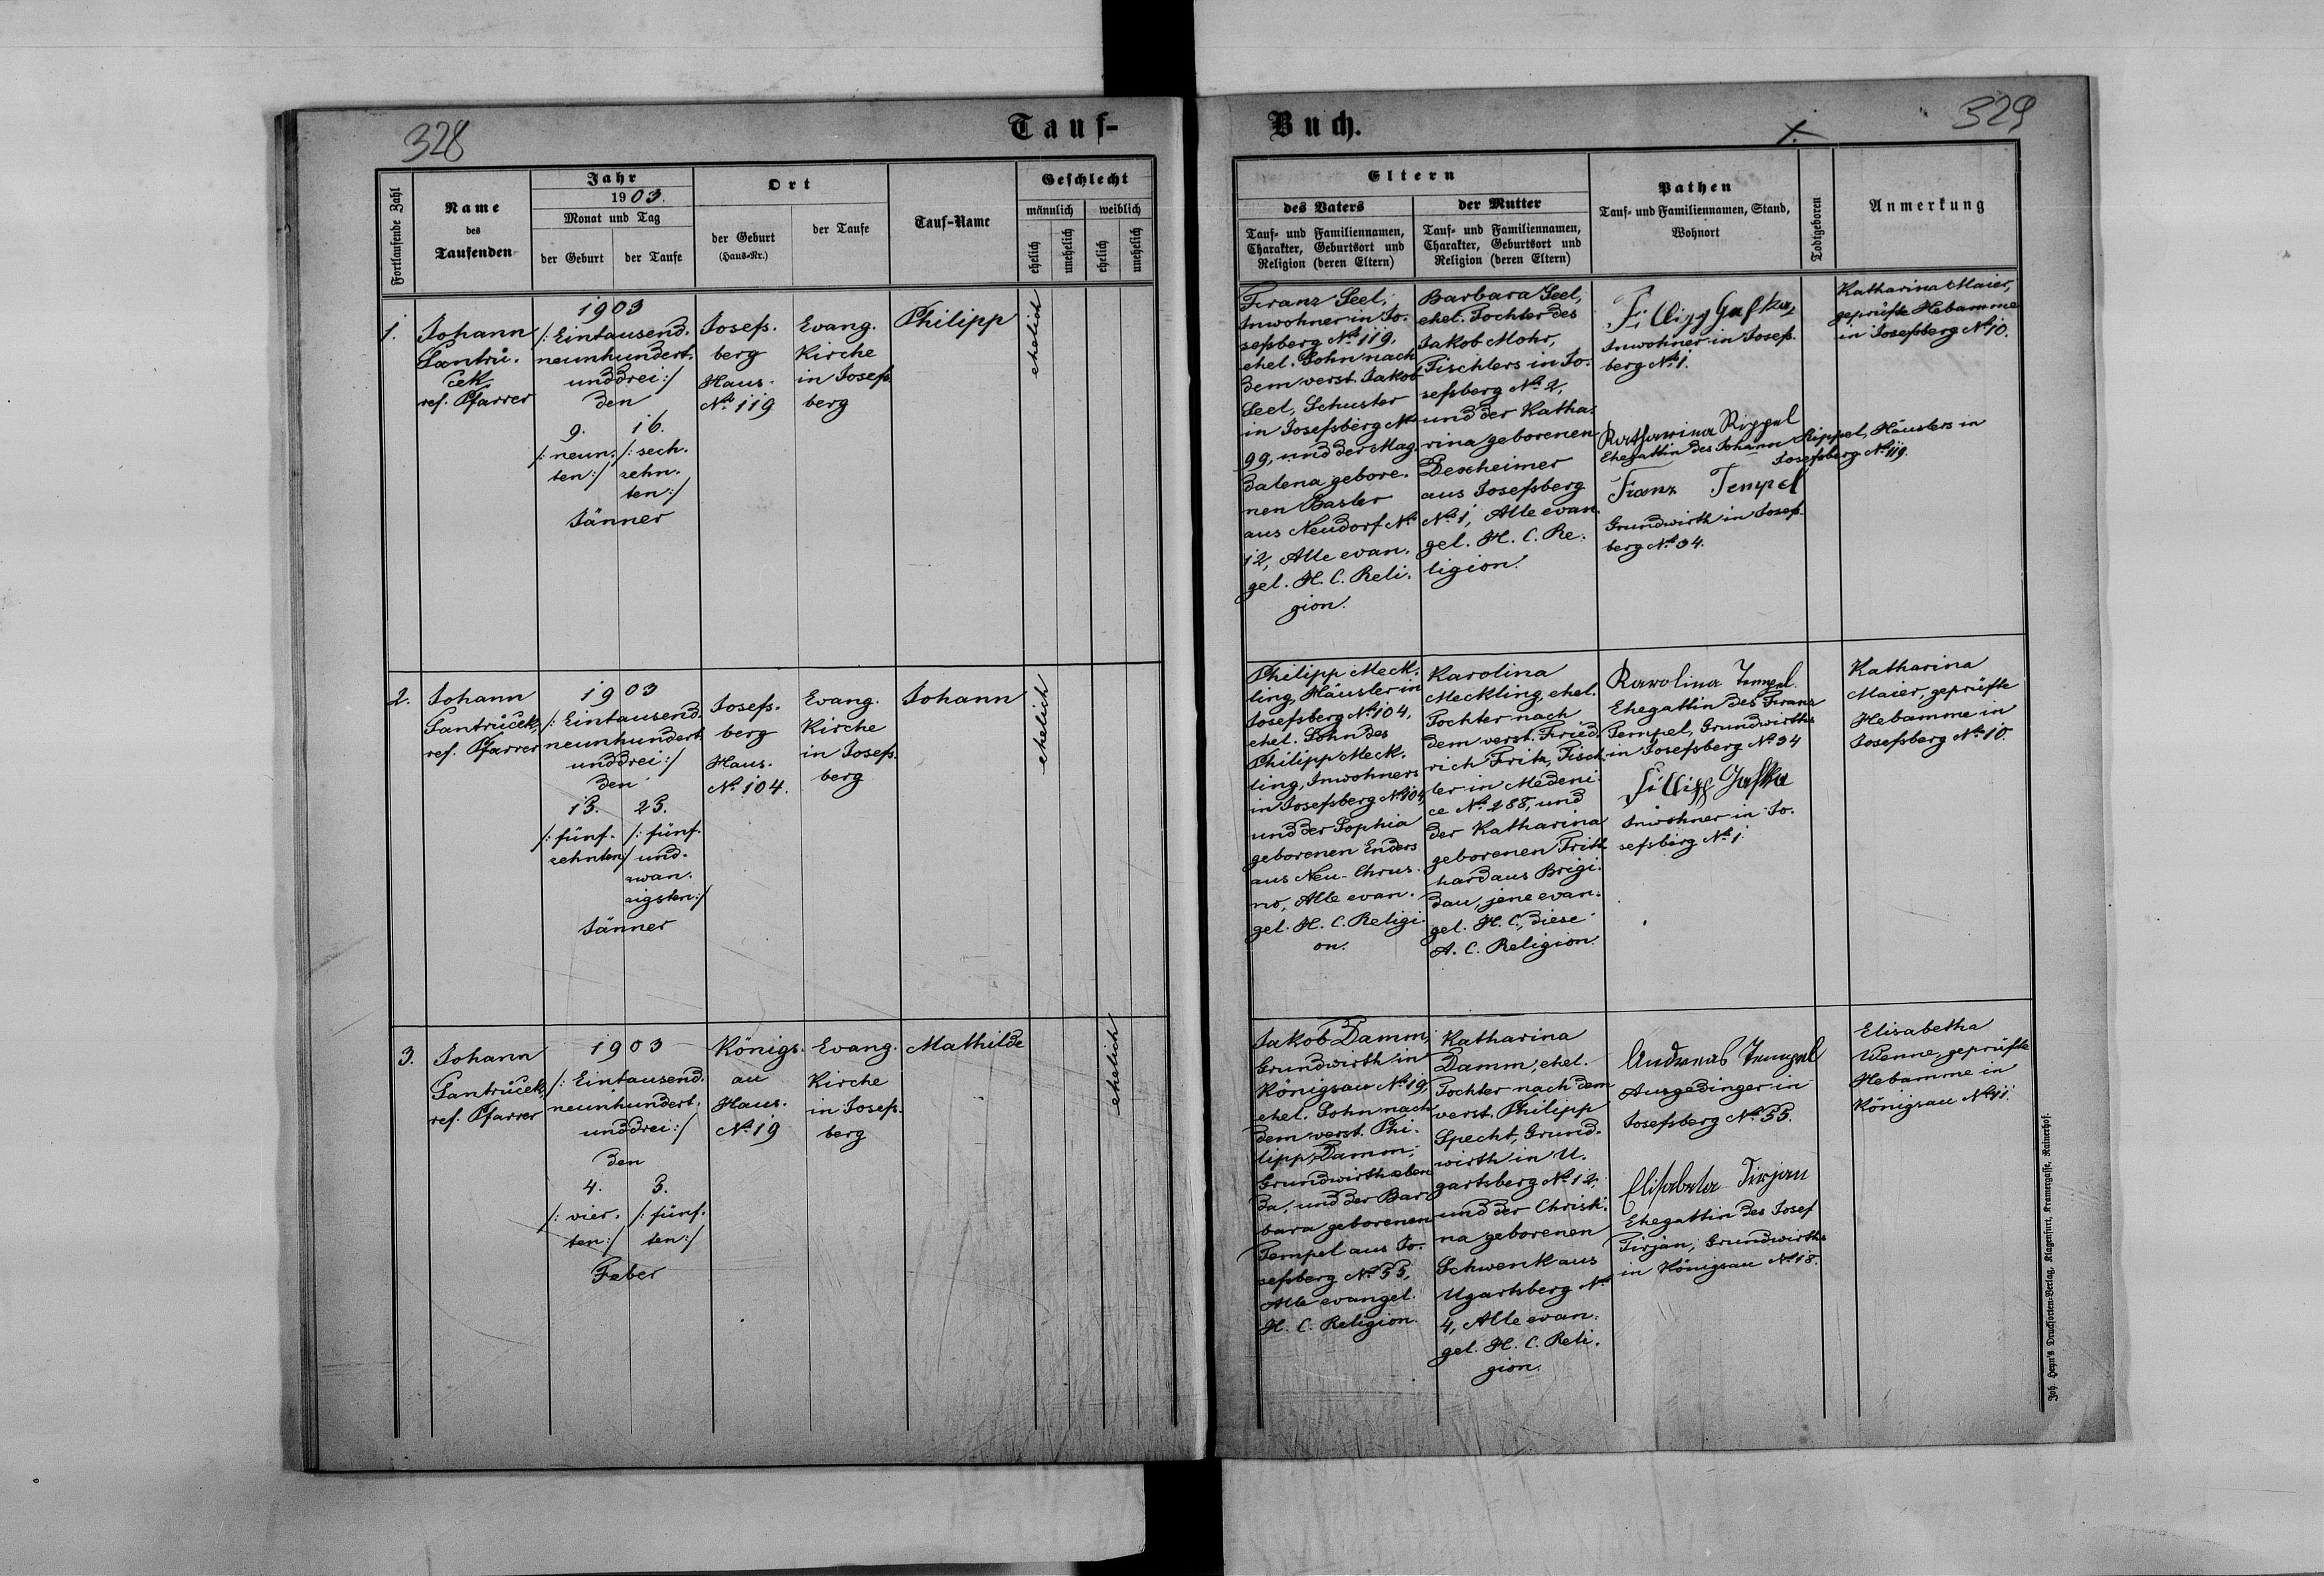 328
Tauf-
Fortlaufende Zahl
Name
des
Taufenden
Jahr
1903.
Monat und Tag
der Geburt
der Taufe
Ort
der Geburt
(Haus-Nr.)
der Taufe
Tauf-Name
Geschlecht
männlich
weiblich
ehelich
unehelich
ehelich
unehelich
1.
Johann
Jantrů.
cek
ref. Pfarrer
1903
/: Eintausend.
neunhundert.
unddrei :/
den
9.
/: neun.
ten :/
16.
/: sech.
zehn.
ten :/
Jänner
Josefs.
berg
Haus.
No 119
Evang.
Kirche
in Josefs.
berg
Philipp
ehelich
2.
Johann
Jantrůcek,
ref. Pfarrer
1903
/: Eintausend.
neunhundert.
unddrei :/
den
15.
/: fünf.
zehnten :/
25.
/: fünf.
und.
zwan.
zigsten :/
Jänner
Josefs.
berg
Haus.
No 104.
Evang.
Kirche
in Josefs.
berg
Johann
ehelich
3.
Johann
Jantrůcek,
ref. Pfarrer
1903
/: Eintausend.
neunhundert.
unddrei :/
den
4.
/: vier.
ten :/
5.
/: fünf.
ten :/
Feber
Königs.
au
Haus.
No 19
Evang.
Kirche
in Josefs.
berg
Mathilde
ehelich
Buch.
329
Eltern
des Vaters
Tauf- und Familiennamen,
Charakter, Geburtsort und
Religion (deren Eltern)
der Mutter
Tauf- und Familiennamen,
Charakter, Geburtsort und
Religion (deren Eltern)
Pathen
Tauf- und Familiennamen, Stand,
Wohnort
Todtgeboren
Anmerkung
Franz Seel,
Inwohner in Jo.
sefsberg No 119,
ehel. Sohn nach
dem verst. Jakob
Seel, Schuster
in Josefsberg No
99, und der Mag.
dalena gebore.
nen Basler
aus Neudorf No
12, Alle evan.
gel. H. C. Reli.
gion.
Barbara Seel,
ehel. Tochter des
Jakob Mohr,
Tischlers in Jo.
sefsberg No 2,
und der Katha.
rina geborenen
Dexheimer
aus Josefsberg
No 1, Alle evan.
gel. H. C. Re.
ligion.
Inwohner in Josefs.
berg No 1.
Katharina Rippel
Ehegattin des Johann Rippel, Häuslers in
Josefsberg No 119.
Franz Tempel
Grundwirth in Josefs.
berg No 34.
Katharina Maier,
geprüfte Hebamme
in Josefsberg No 10.
Philipp Meck.
ling, Häusler in
Josefsberg No 104,
ehel. Sohn des
Philipp Meck.
ling, Inwohners
in Josefsberg No 104,
und der Sophia
geborenen Enders
aus Neu-Chrus.
no, Alle evan.
gel. H. C. Religi.
on.
Karolina
Meckling, ehel.
Tochter nach
dem verst. Fried.
rich Fritz, Tisch.
ler in Medeni.
ce No 288, und
der Katharina
geborenen Fritz
hard aus Brigi.
dau, jene evan.
gel. H. C., diese
A. C. Religion.
Karolina Tempel
Ehegattin des Franz
Tempel, Grundwirths
in Josefsberg No 34
Inwohner in Jo.
sefsberg No 1.
Katharina
Maier, geprüfte
Hebamme in
Josefsberg No 10.
Jakob Damm,
Grundwirth in
Königsau No 19,
ehel. Sohn nach
dem verst. Phi.
lipp Damm,
Grundwirth eben
da, und der Bar.
bara geborenen
Tempel aus Jo.
sefsberg No 55,
Alle evangel.
H. C. Religion.
Katharina
Damm, ehel.
Tochter nach dem
verst. Philipp
Specht, Grund.
wirth in U.
gartsberg No 12,
und der Christi.
na geborenen
Schwenk aus
Ugartsberg No
4, Alle evan.
gel. H. C. Reli.
gion.
Andreas Tempel
Ausgedinger in
Josefsberg No 55.
Elisabeta Tirjan
Ehegattin des Josef
Tirjan, Grundwirths
in Königsau No 18.
Elisabetha
Wenne, geprüfte
Hebamme in
Königsau No 41.
Joh. Heyn's Drucksorten-Verlag, Klagenfurt, Kramergasse, Rainerhof.